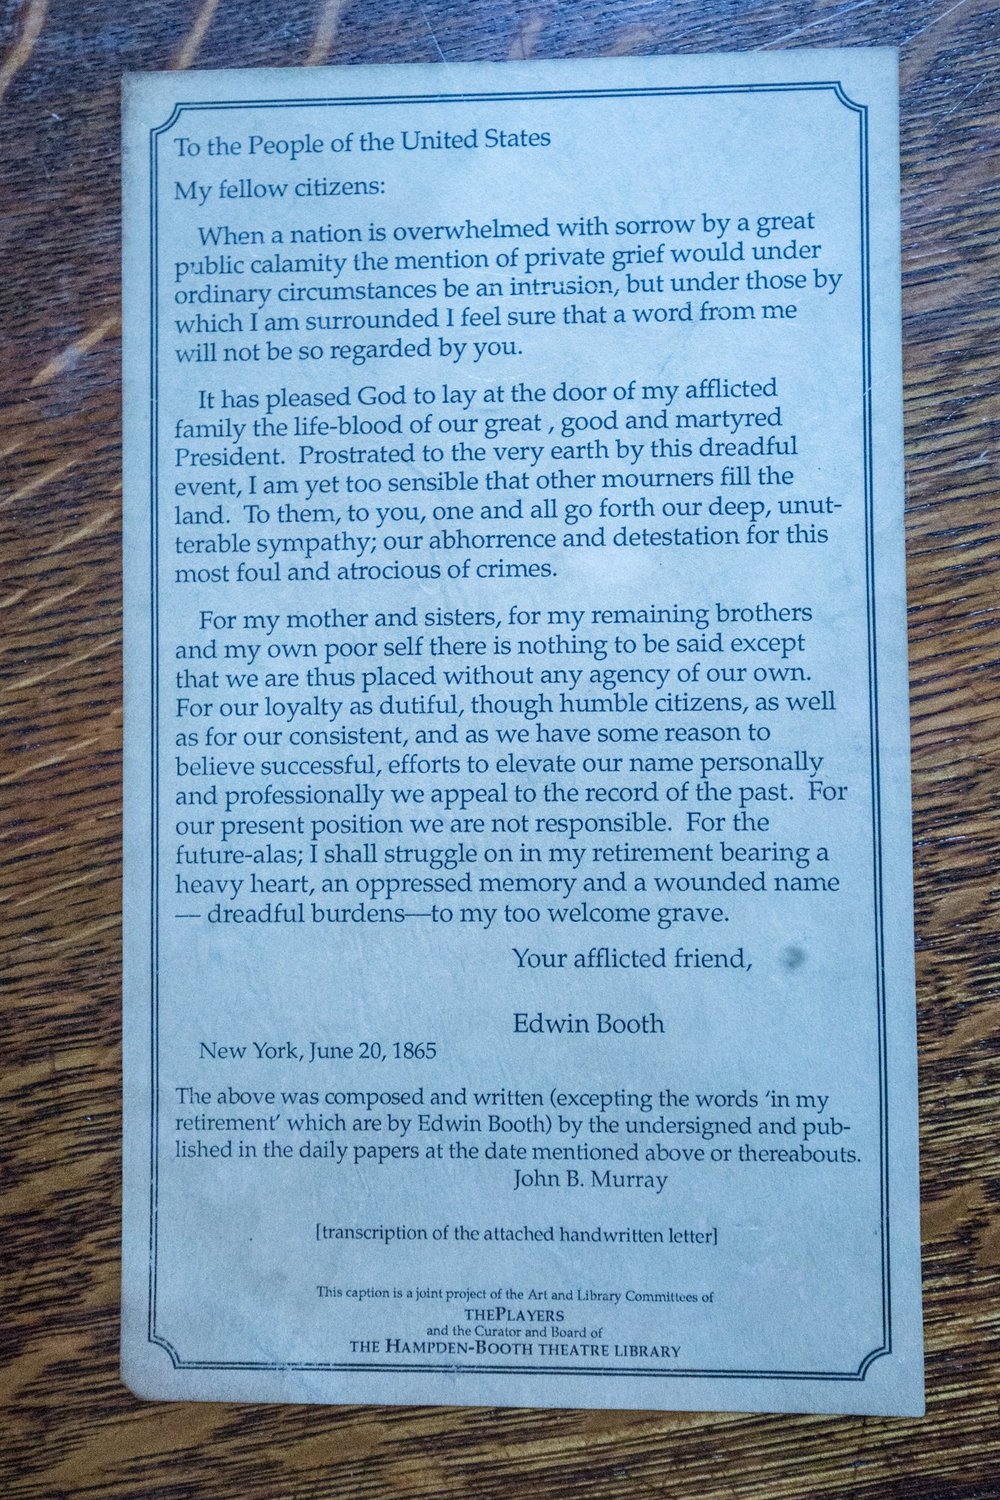 To the People of the United States
My fellow citizens:
When a nation is overwhelmed with sorrow by a great
public calamity the mention of private grief would under
ordinary circumstances be an intrusion, but under those by
which I am surrounded I feel sure that a word from me
will not be so regarded by you.
It has pleased God to lay at the door of my afflicted
family the life-blood of our great , good and martyred
President. Prostrated to the very earth by this dreadful
event, I am yet too sensible that other mourners fill the
land. To them, to you, one and all go forth our deep, unut-
terable sympathy; our abhorrence and detestation for this
most foul and atrocious of crimes.
For my mother and sisters, for my remaining brothers
and my own poor self there is nothing to be said except
that we are thus placed without any agency of our own.
For our loyalty as dutiful, though humble citizens, as well
as for our consistent, and as we have some reason to
believe successful, efforts to elevate our name personally
and professionally we appeal to the record of the past. For
our present position we are not responsible. For the
future-alas; I shall struggle on in my retirement bearing a
heavy heart, an oppressed memory and a wounded name
— dreadful burdens—to my too welcome grave.
Your afflicted friend,
Edwin Booth
New York, June 20, 1865
The above was composed and written (excepting the words 'in my
retirement' which are by Edwin Booth) by the undersigned and pub-
lished in the daily papers at the date mentioned above or thereabouts.
John B. Murray
[transcription of the attached handwritten letter]
This caption is a joint project of the Art and Library Committees of
THEPLAYERS
and the Curator and Board of
THE HAMPDEN-BOOTH THEATRE LIBRARY